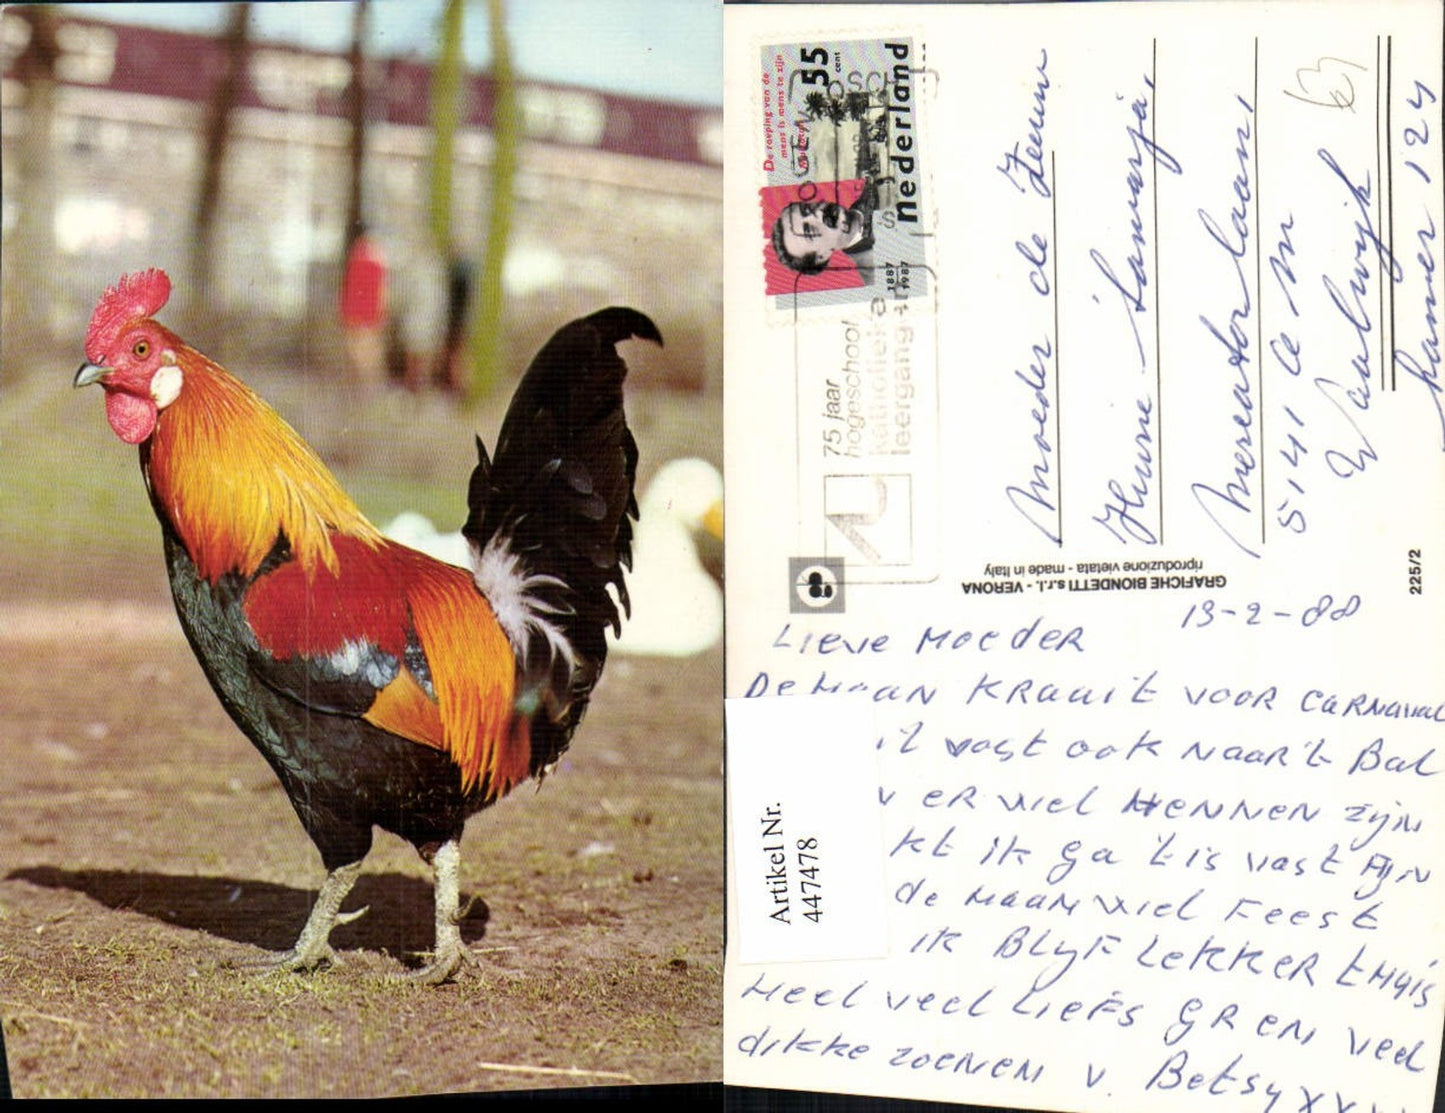 De roeping van de
mens is mens te zijn
55
cent
nederland
1887
1987
75 jaar
hogeschool
katholieke
leergangen
moeder de Leeuw
Huize
Mercatorlaan
5141 am
Waalwijk
kamer 124
GRAFICHE BIONDETTI s.r.l. - VERONA
riproduzione vietata - made in Italy
225/2
13-2-88
Lieve Moeder
De Haan KRaait voor CaRNaval
vast ook naar 't Bal
er wiel HENNEN zijn
ik ga 't is vast Fijn
de Haan wiel Feest
ik BLijF Lekker tHuis
Heel veel Liefs
veel
dikke zoenen v. Betsy xx
Artikel Nr.
447478